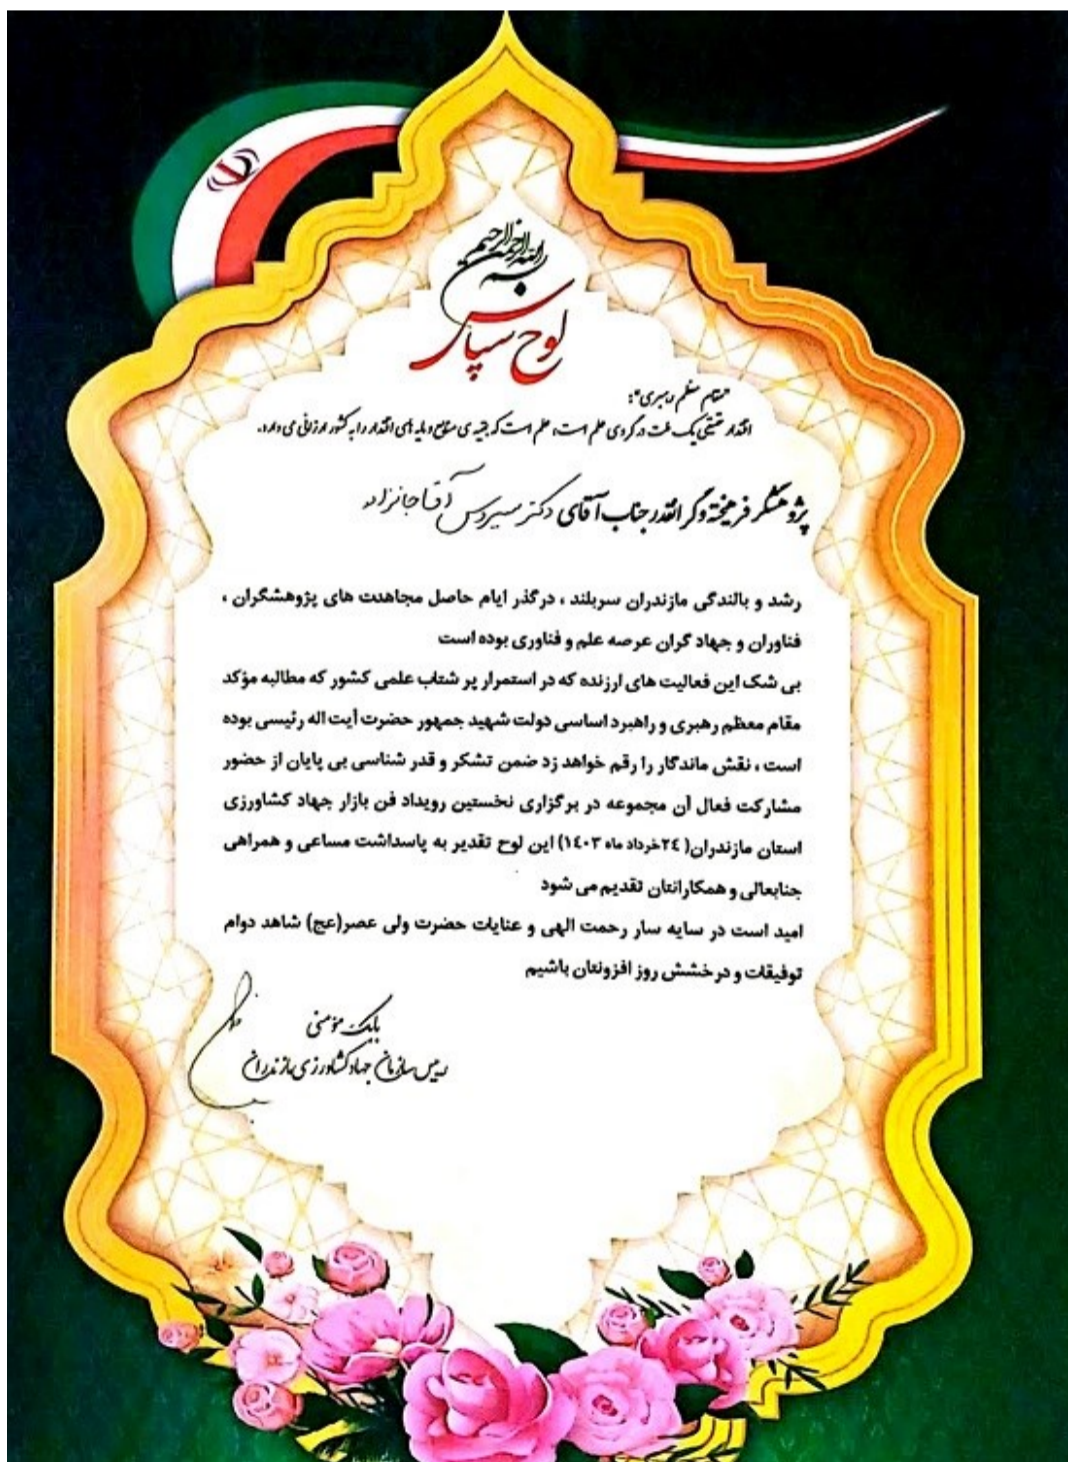 بسم الله الرحمن الرحیم
لوح سپاس
مقام معظم رهبری:
اقتدار حقیقی یک ملت در گروی علم است، علم است که بقیه ی منابع و مایه های اقتدار را به کشور ارزانی می دارد.
پژوهشگر فرهیخته و گرانقدر جناب آقای دکتر سیروس آقاجانزاده
رشد و بالندگی مازندران سربلند ، درگذر ایام حاصل مجاهدت های پژوهشگران ،
فناوران و جهاد گران عرصه علم و فناوری بوده است
بی شک این فعالیت های ارزنده که در استمرار پر شتاب علمی کشور که مطالبه مؤکد
مقام معظم رهبری و راهبرد اساسی دولت شهید جمهور حضرت آیت اله رئیسی بوده
است ، نقش ماندگار را رقم خواهد زد ضمن تشکر و قدر شناسی بی پایان از حضور
مشارکت فعال آن مجموعه در برگزاری نخستین رویداد فن بازار جهاد کشاورزی
استان مازندران( ٢٤خرداد ماه ١٤٠٣) این لوح تقدیر به پاسداشت مساعی و همراهی
جنابعالی و همکارانتان تقدیم می شود
امید است در سایه سار رحمت الهی و عنایات حضرت ولی عصر(عج) شاهد دوام
توفیقات و درخشش روز افزونتان باشیم
بابک مؤمنی
رییس سازمان جهاد کشاورزی مازندران